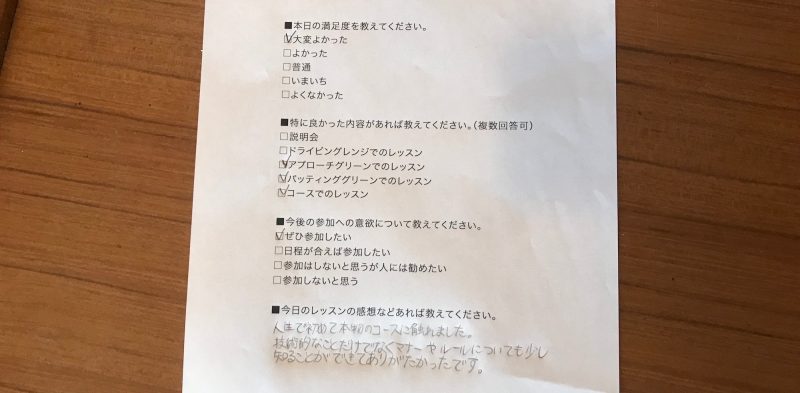 ■本日の満足度を教えてください。
☑大変よかった
□よかった
□普通
□いまいち
□よくなかった
■特に良かった内容があれば教えてください。(複数回答可)
□説明会
□ドライビングレンジでのレッスン
☑アプローチグリーンでのレッスン
☑パッティンググリーンでのレッスン
☑コースでのレッスン
■今後の参加への意欲について教えてください。
☑ぜひ参加したい
□日程が合えば参加したい
□参加はしないと思うが人には勧めたい
□参加しないと思う
■今日のレッスンの感想などあれば教えてください。
人生で初めて本物のコースに触れました。
技術的なことだけでなくマナーやルールについても少し
知ることができてありがたかったです。